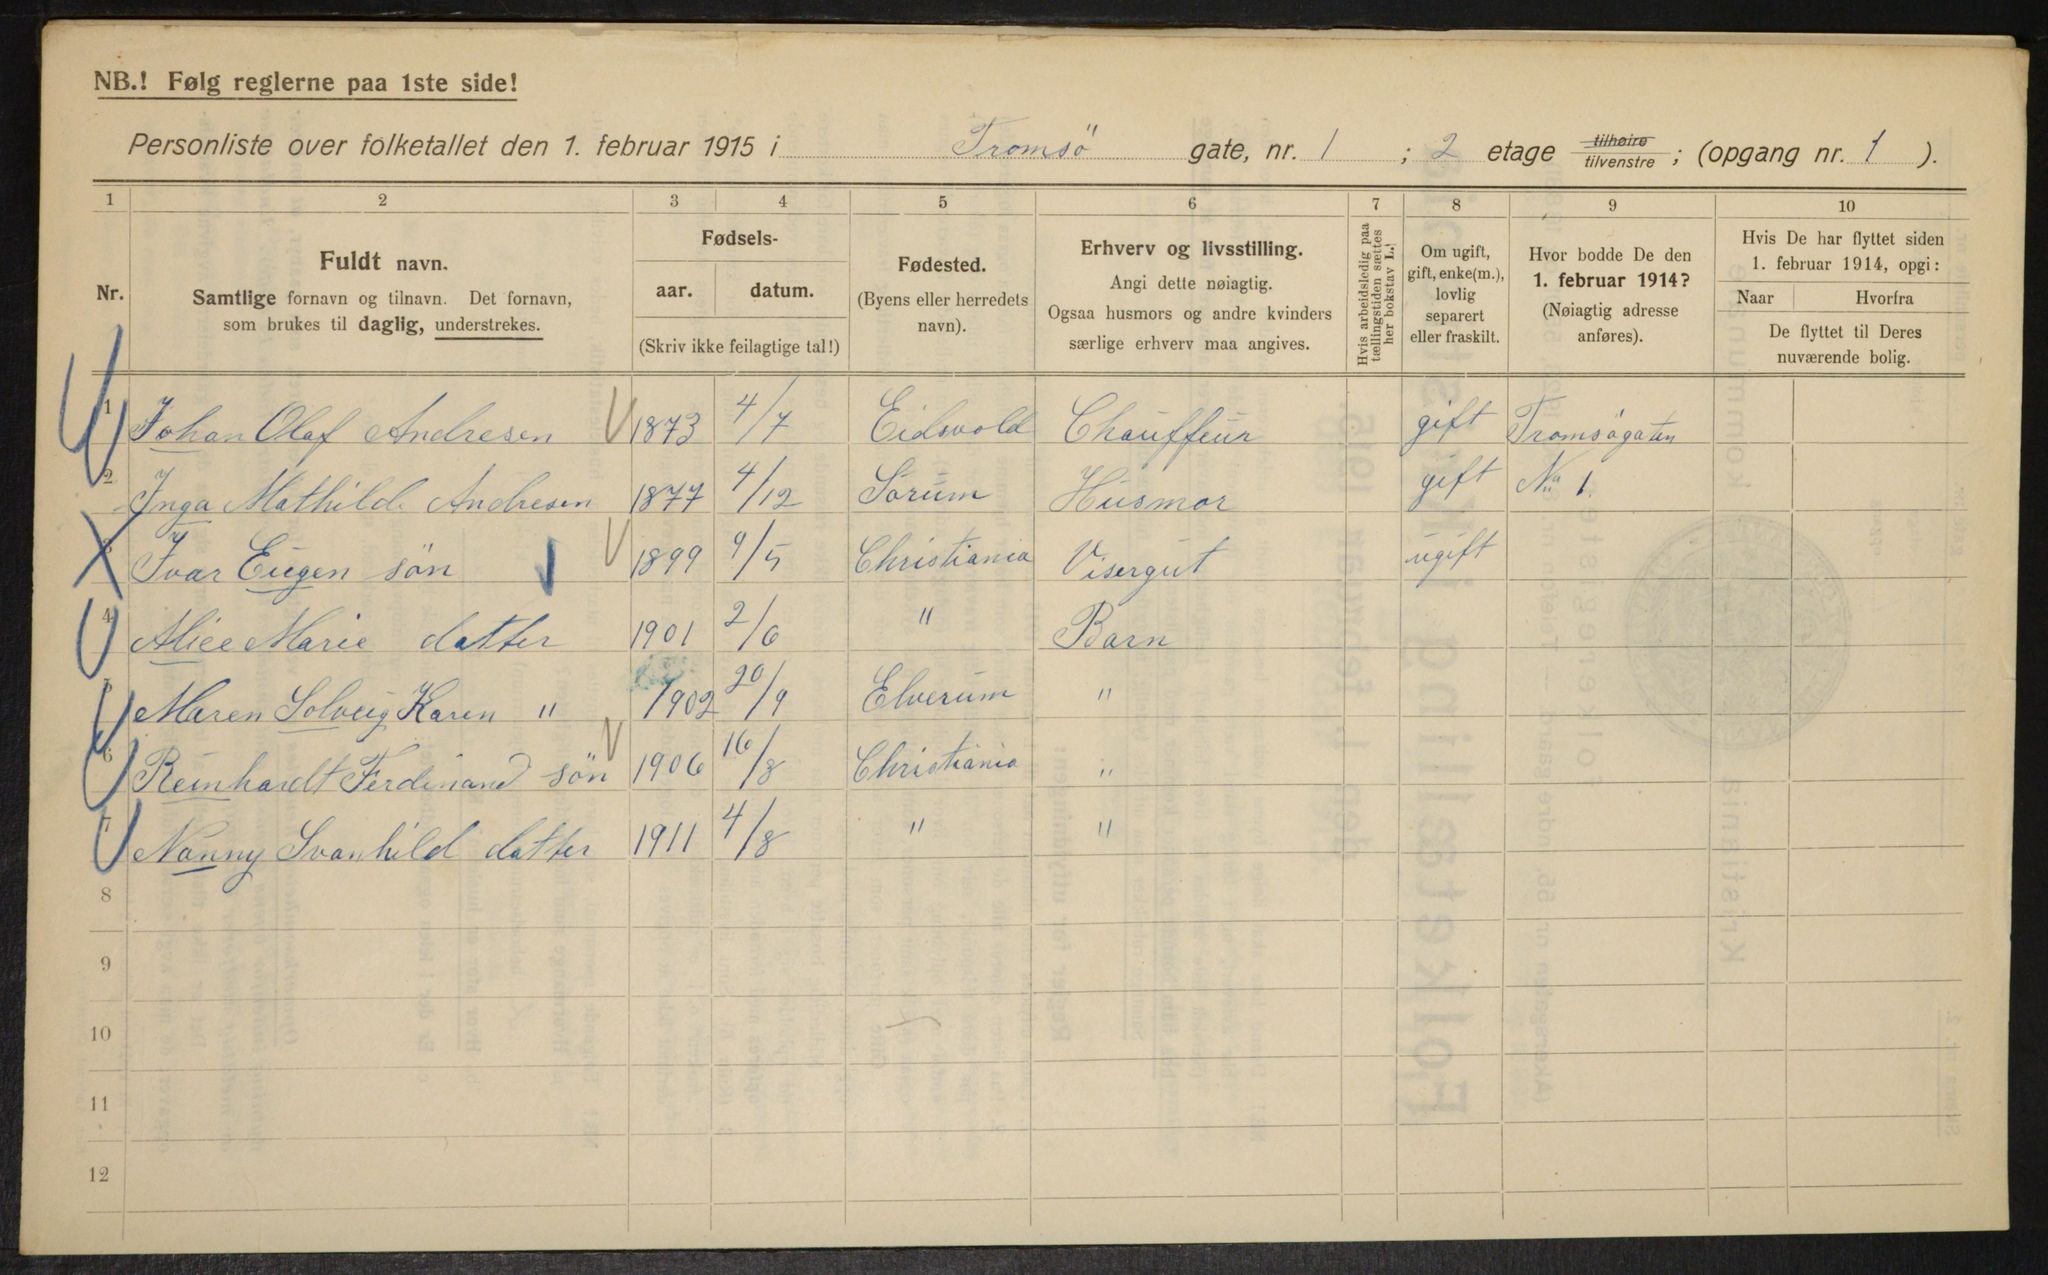 NB.! Følg reglerne paa 1ste side!
Personliste over folketallet den 1. februar 1915 i Tromsö gate, nr. 1 ; 2 etage tilhøire tilvenstre ; (opgang nr. 1 ).
1 2 3 4 5 6 7 8 9 10
Nr.
Fuldt navn.
Samtlige fornavn og tilnavn. Det fornavn,
som brukes til daglig, understrekes.
Fødsels-
aar. datum.
(Skriv ikke feilagtige tal!)
Fødested.
(Byens eller herredets
navn).
Erhverv og livsstilling.
Angi dette nøiagtig.
Ogsaa husmors og andre kvinders
særlige erhverv maa angives.
Hvis arbeidsledig paa
tællingstiden sættes
her bokstav L.
Om ugift,
gift, enke(m.),
lovlig
separert
eller fraskilt.
Hvor bodde De den
1. februar 1914?
(Nøiagtig adresse
anføres).
Hvis De har flyttet siden
1. februar 1914, opgi:
Naar Hvorfra
De flyttet til Deres
nuværende bolig.
1 Johan Olaf Andresen 1873 4/7 Eidsvold Chauffeur gift Tromsögaten
2 Inga Mathild. Andresen 1877 4/12 Sörum Husmor gift No 1.
3 Ivar Eugen sön 1899 9/5 Christiania Visergut ugift
4 Alice Marie datter 1901 2/6 " Barn
5 Maren Solveig Karen " 1902 20/9 Elverum "
6 Reinhardt Ferdinand sön 1906 16/8 Christiania "
7 Nanny Svanhild datter 1911 4/8 " "
8
9
10
11
12